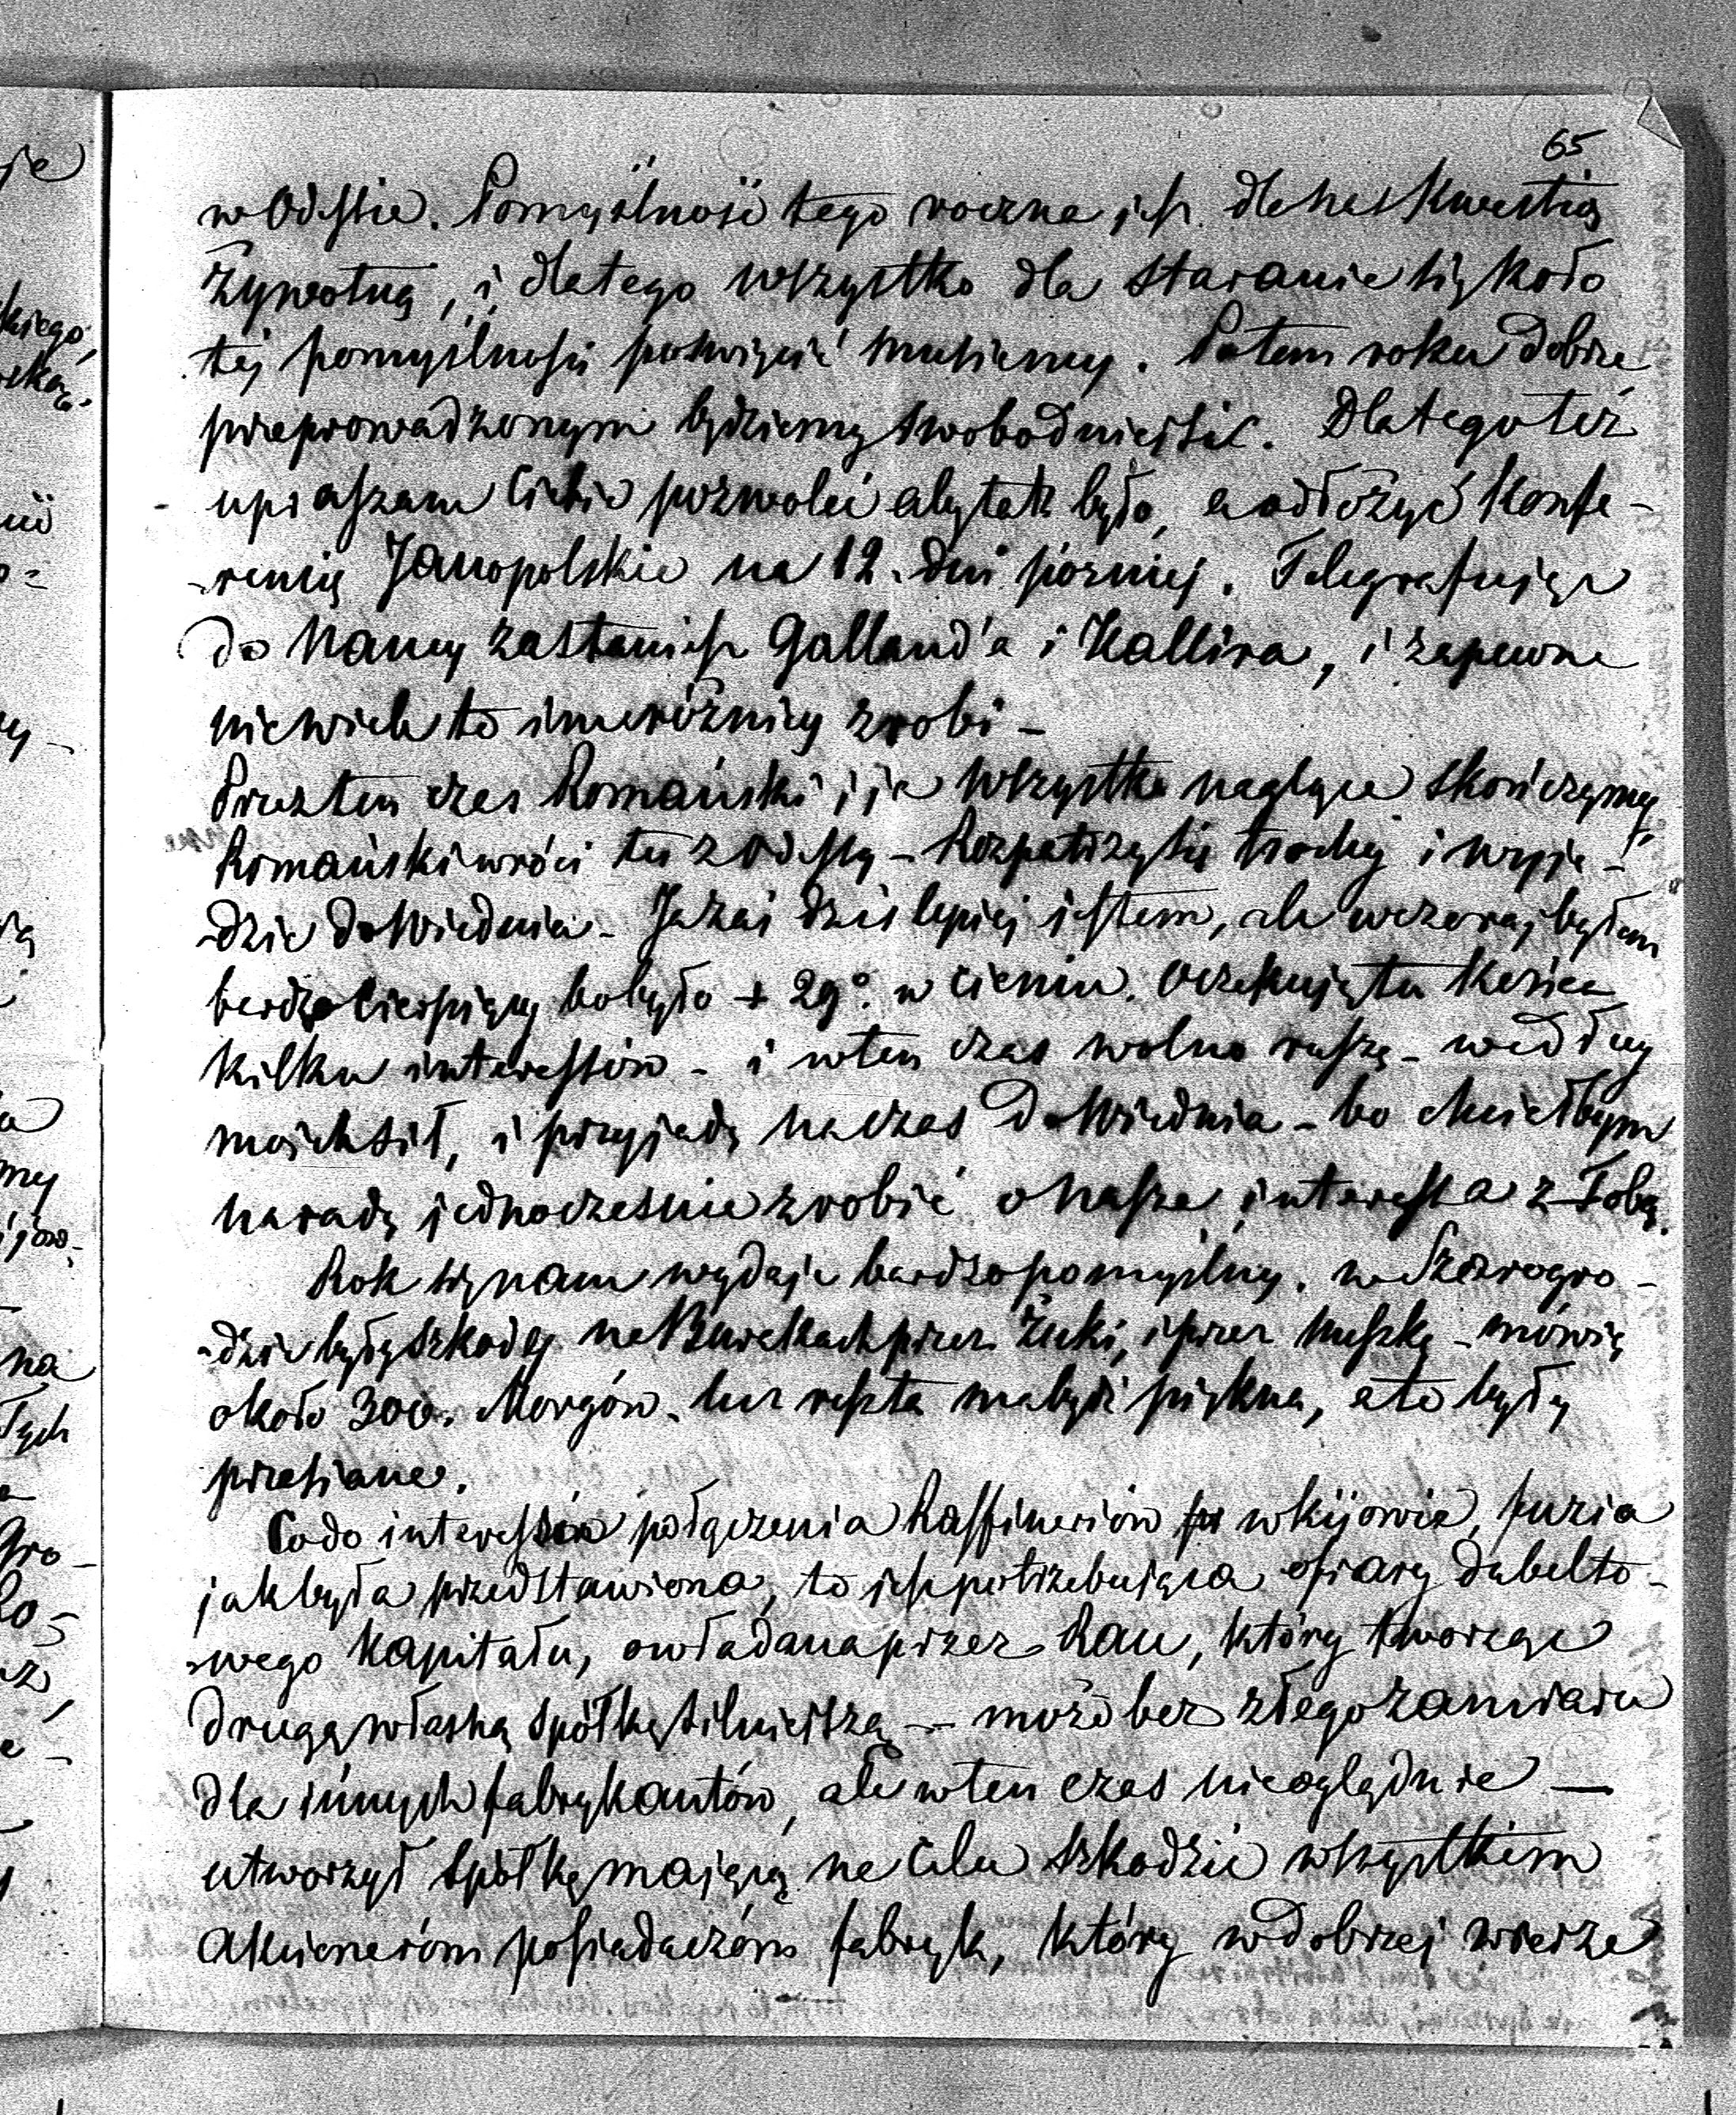 65
w Odessie. Pomyślność tego roczna jest dla nas kwestią
żywotną, i dlatego wszystko dla starania się koło
téj pomyślności poświęcić musiemy. Po tem roku dobrze
przeprowadzonym będziemy swobodniejsić. Dlatego téż
upraszam Ciebie pozwolić aby tak było, a odłożyć konfe-
-rencią Janopolskie na 12. dni pózniej. Telegrafując
do Nancy zastaniesz Galland'a i Kallira, i zapewne
niewiele to im różnicy zrobi -
Przez ten czas Romański i ja wszystko naglące skończymy,
Romański wróci tu z Odessy - Rozpatrzy się trochę i wyje-
-dzie do Wiednia - Ja zaś dziś lepiej jestem, ale wczoraj byłem
bardzo cierpiący bo było + 29°. w cieniu. Oczekuję tu końca
kilku interessów - i w ten czas wolno ruszę - według
moich sił, i przyjadę na czas do Wiednia - bo chciałbym
naradę jednocześnie zrobić o nasze interessa z Tobą.
Rok się nam wydaje bardzo pomyślny. w Szarogro-
-dzie były szkody na Burakach przez żuki, i przez muszkę - mówią
około 300. Morgów - lecz reszta ma być piękna, a te były
przesiane.
Co do interessów połączenia Raffineriów w Kijowie, fuzia
jak była przedstawiona, to jest potrzebująca ofiary dubelto-
-wego kapitału, owładana przez Rau, który tworząc
drugą własną spółkę silniejszą - może bez złego zamiaru
dla innych fabrykantów, ale w ten czas nieoględnie —
utworzył spółkę mającą na celu szkodzić wszystkim
akcionerόm posiadaczóm fabryk, który w dobrzej wierze